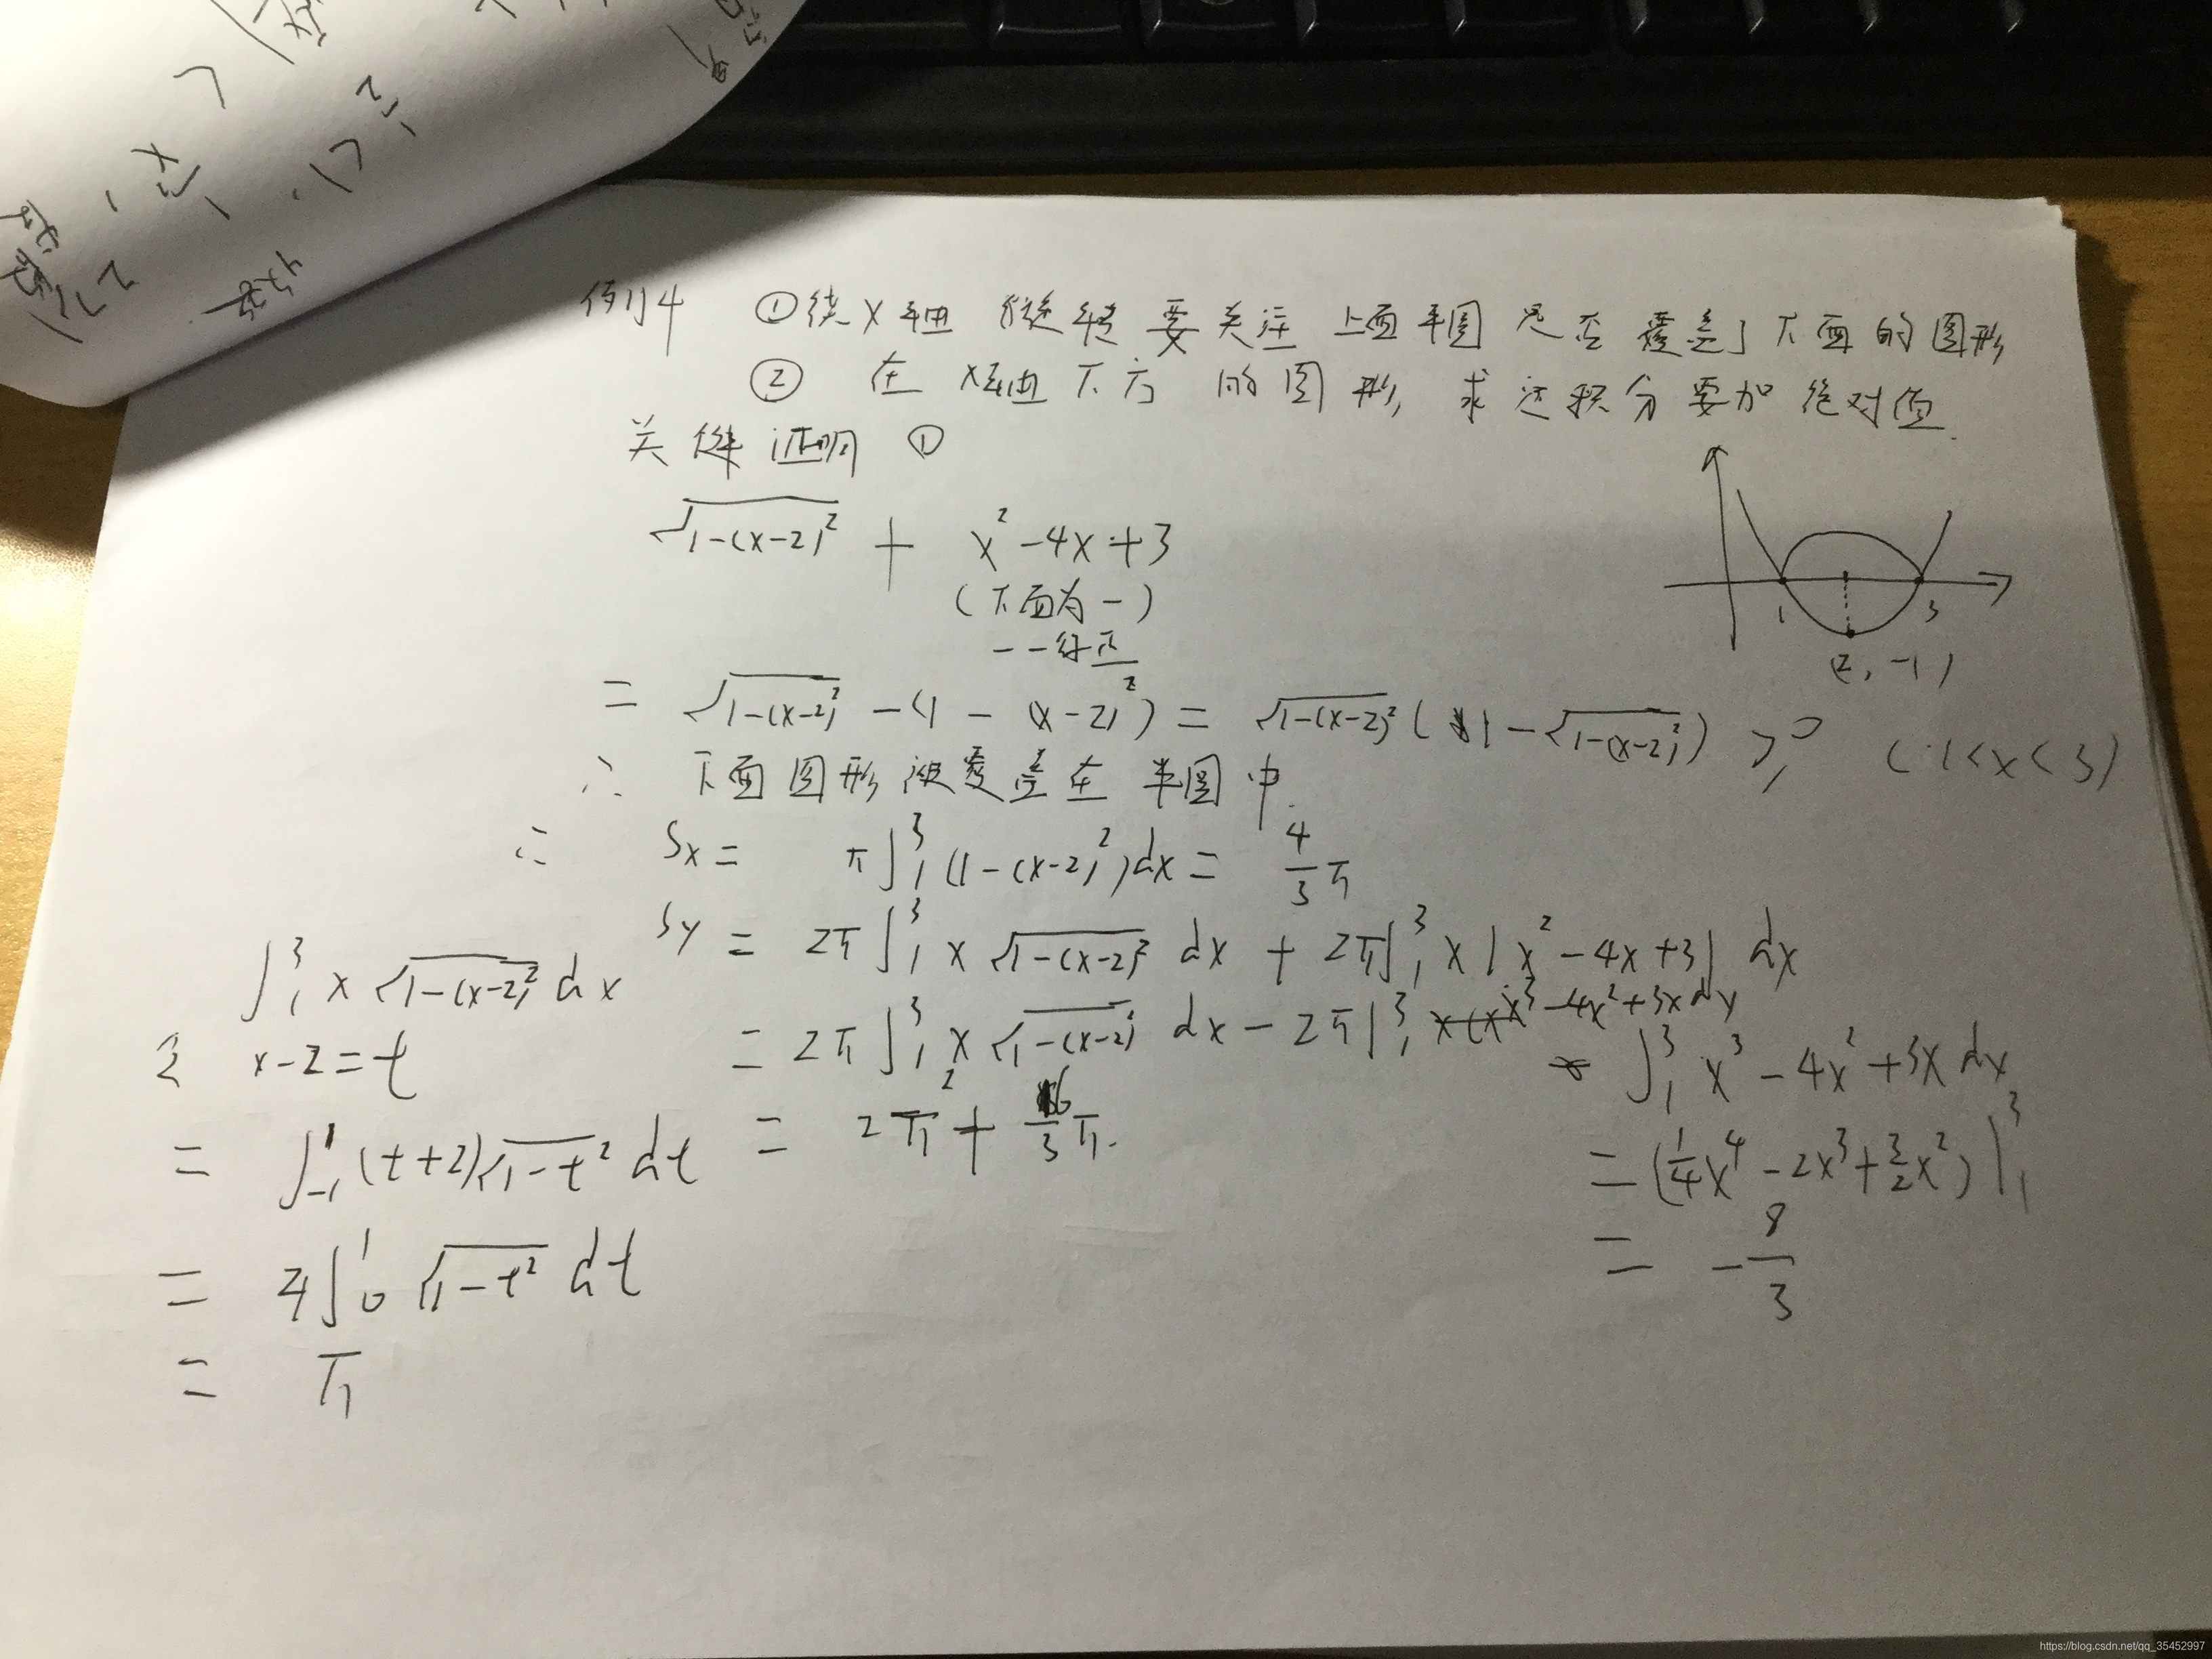 例4 ①绕x轴旋转要关注上面半圆是否覆盖了下面的图形
② 在x轴下方的图形,求这积分要加绝对值.
关键证明①
√(1-(x-2)²) + x²-4x+3
(下面为-)
--得正
= √(1-(x-2)²) -(1-(x-2)²) = √(1-(x-2)²) (1-√(1-(x-2)²)) ≥0 (1<x<3)
∴ 下面图形被覆盖在半圆中.
∴ Sx = π∫₁³(1-(x-2)²)dx = 4/3 π
Sy = 2π∫₁³ x√(1-(x-2)²) dx + 2π∫₁³ x|x²-4x+3| dx
= 2π∫₁³ x√(1-(x-2)²) dx - 2π∫₁³ x³-4x²+3x dx
= 2π² + 16/3 π.
∫₁³ x√(1-(x-2)²) dx
令 x-2=t
= ∫₋₁¹ (t+2)√(1-t²) dt
= 4∫₀¹ √(1-t²) dt
= π
∫₁³ x³-4x²+3x dx
= (1/4 x⁴ - 2x³ + 3/2 x²)|₁³
= -8/3
1
3
(2,-1)
https://blog.csdn.net/qq_35452997